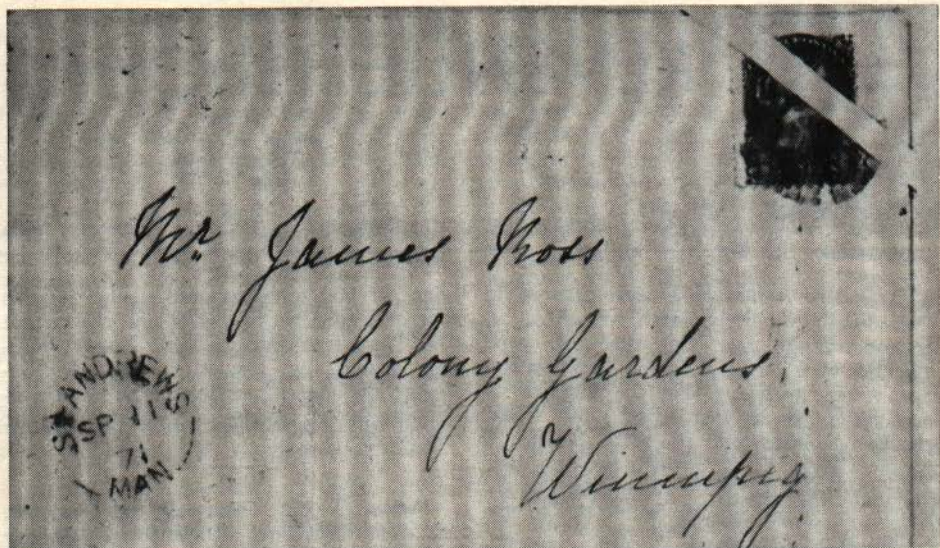 Mr James Ross
Colony Gardens,
Winnipeg
ST ANDREWS
SP 11
71
MAN